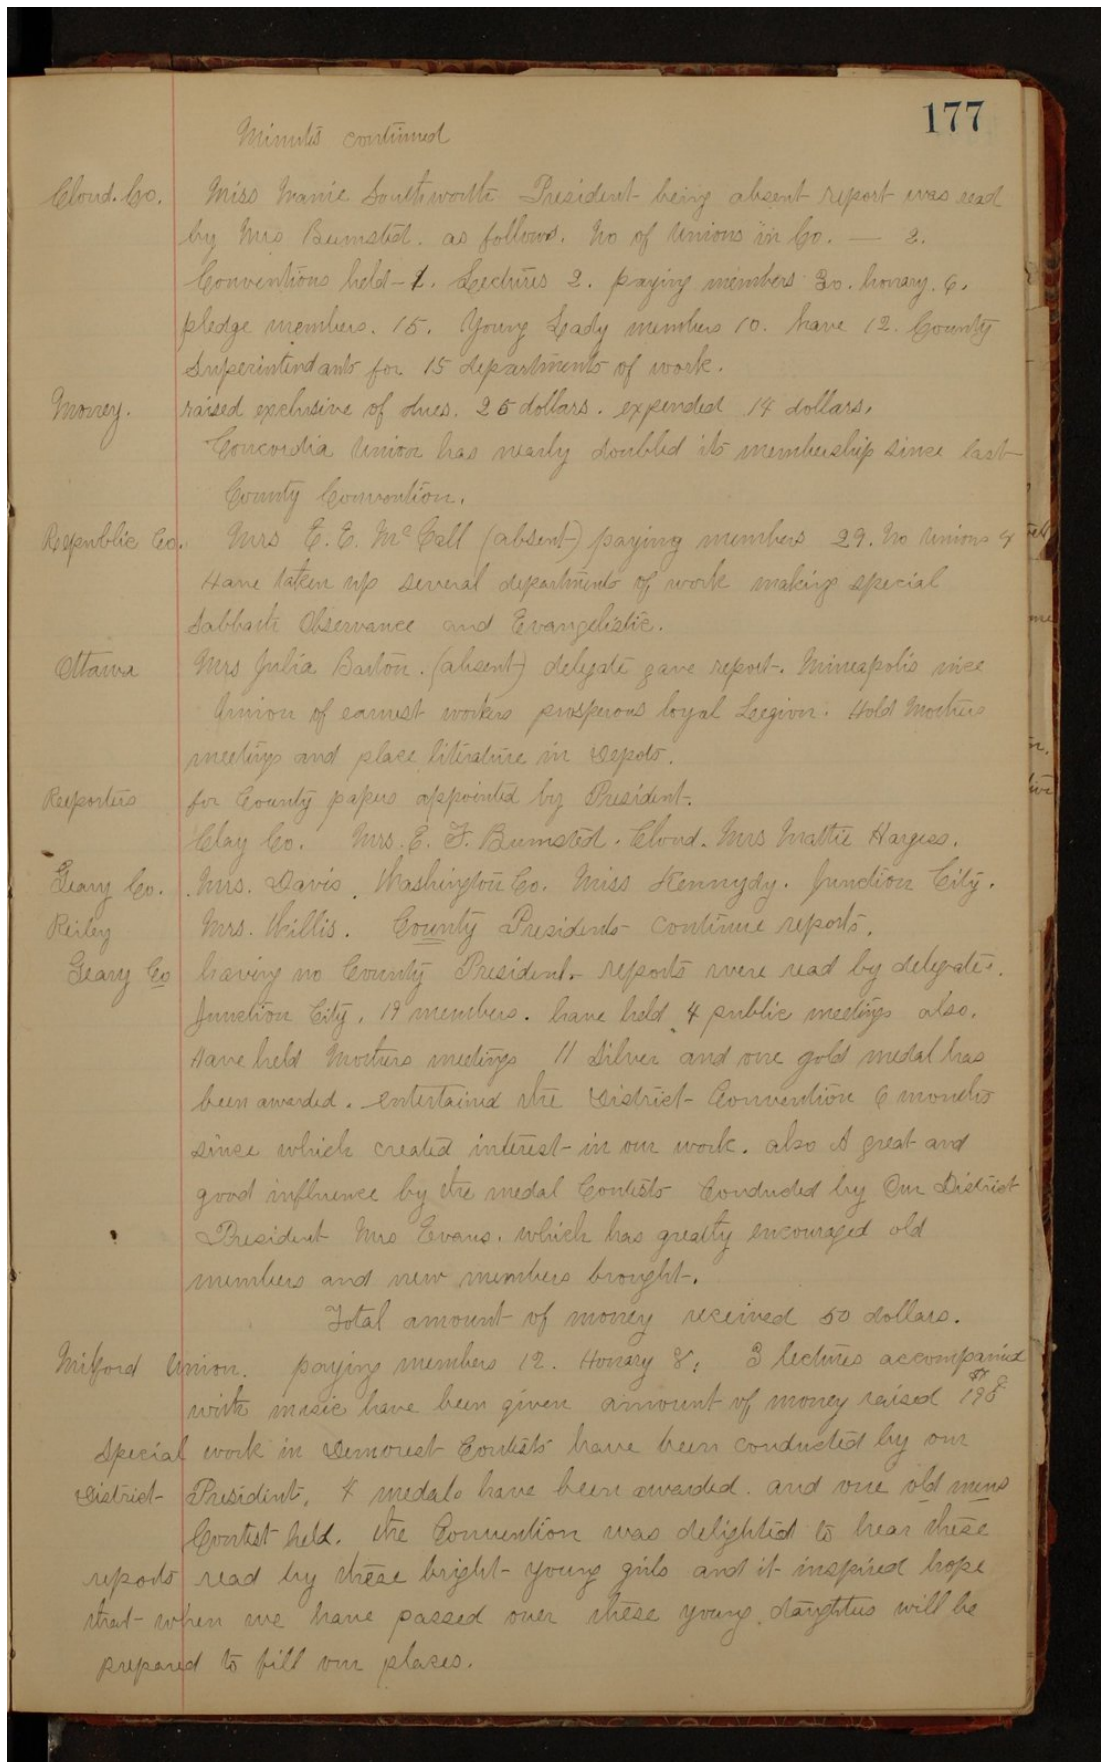 177
Minutes continued
Cloud. Co. Miss Nanie Southworth President being absent report was read
by Mrs Bumsted. as follows. No of Unions in Co. — 2.
Conventions held - 1. Lectures 2. paying members 30. honary. 6.
pledge members. 15. Young Lady members 10. have 12. County
Superintindants for 15 departments of work.
Money. raised exclusive of dues. 25 dollars. expended 14 dollars.
Concordia Union has nearly doubled its membership since last
County Convention.
Republic Co. Mrs E. E. McCall (absent) paying members 29. No Unions 4
Have taken up several departments of work making special
Sabbath Observance and Evangelistic.
Ottawa Mrs Julia Barton. (absent) delegate gave report. Mineapolis nice
Union of earnest workers prosperous loyal Legion. Hold Mothers
meetings and place literature in Depots.
Reeporters for County papers appointed by President.
Clay Co. Mrs. E. F. Bumsted. Cloud. Mrs Mattie Hargess.
Geary Co. Mrs. Davis. Washington Co. Miss Kennydy. Junction City.
Reiley Mrs. Willis. County Presidents continue reports.
Geary Co having no County President. reports were read by delegates.
Junction City. 19 members. have held 4 public meetings also.
Have held Mothers meetings 11 Silver and one gold medal has
been awarded. entertained the District Convention 6 months
since which created interest in our work. also A great and
good influence by the medal Contests Conducted by Our District
President Mrs Evans. which has greatly encouraged old
members and new members brought.
Total amount of money received 50 dollars.
Milford Union. paying members 12. Honary 8. 3 lectures accompanied
with music have been given amount of money raised
Special work in Demorest Contests have been conducted by our
District President, 4 medals have been awarded. and one old mens
Contest held. the Convention was delighted to hear these
reports read by these bright young girls and it inspired hope
that when we have passed over these young daughters will be
prepared to fill our places.